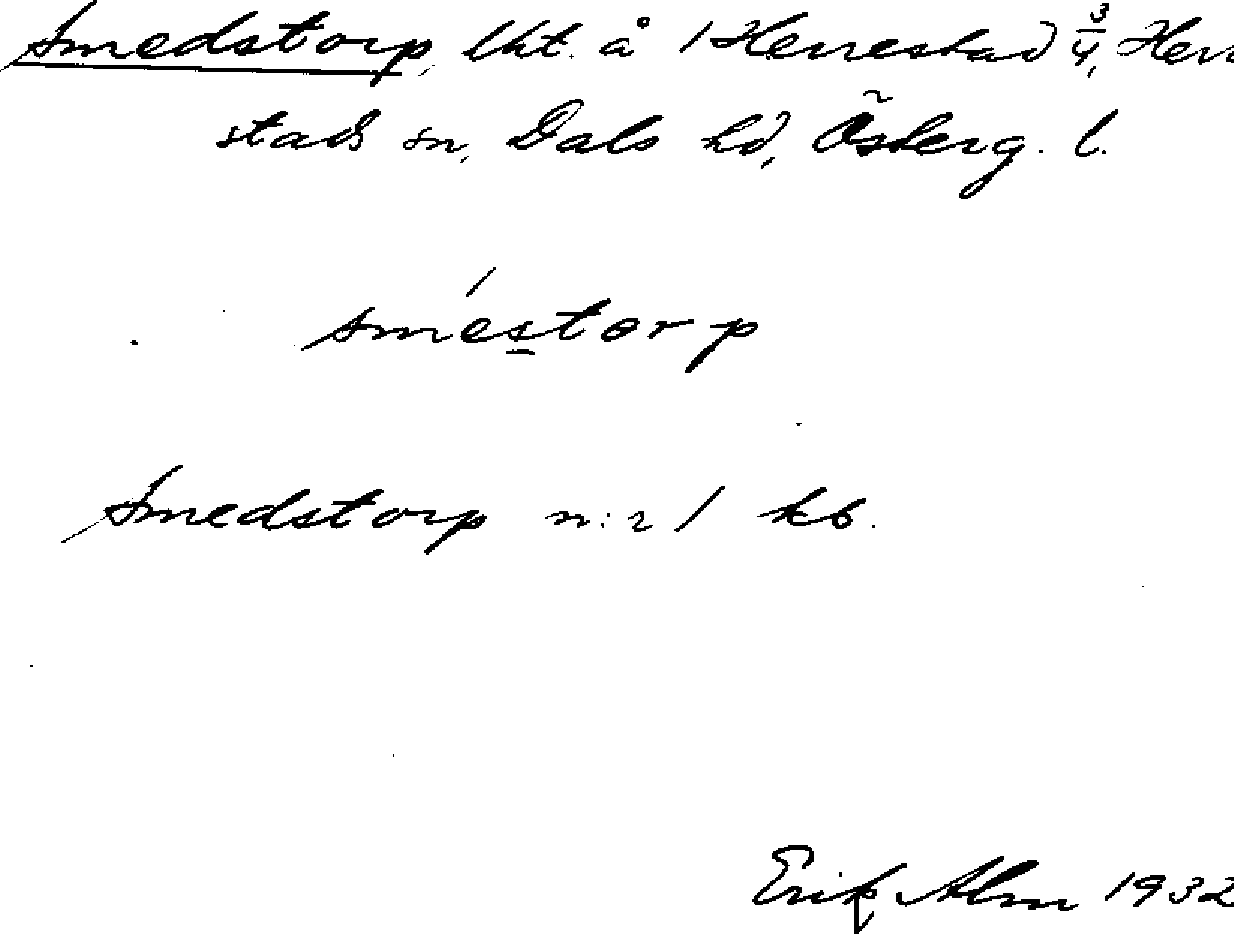 Smedstorp, lht. å 1 Herrestad 3/4, Herr
stads sn, Dals hd, Österg. l.
sme´storp
Smedstorp n:r 1 kb.
Erik Alm 1932